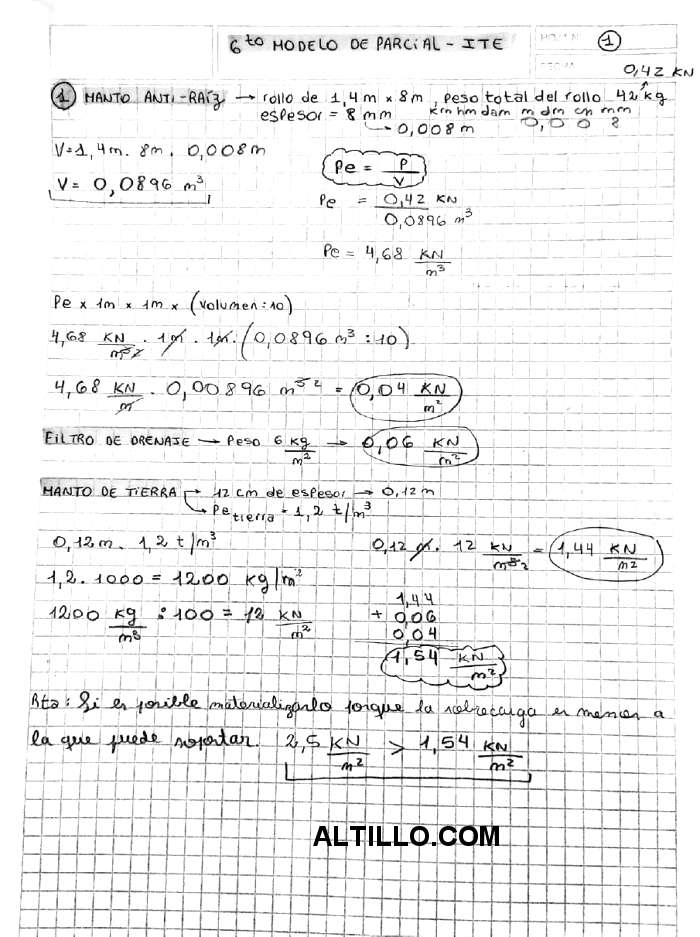 6to MODELO DE PARCIAL - ITE
1
FECHA
0,42 KN
1 MANTO ANTI-RAÍZ → rollo de 1,4m x 8m, peso total del rollo 42 kg
espesor = 8 mm
km hm dam m dm cm mm
0,008m
0,0 0 8
V=1,4m. 8m. 0,008m
V= 0,0896 m³
Pe = P/V
Pe = 0,42 KN / 0,0896 m³
Pe = 4,68 KN/m³
Pe x 1m x 1m x (volumen:10)
4,68 KN/m³² . 1m . 1m. (0,0896 m³ : 10)
4,68 KN/m . 0,00896 m³² = 0,04 KN/m²
FILTRO DE DRENAJE → Peso 6 kg/m² → 0,06 KN/m²
MANTO DE TIERRA → 12 cm de espesor → 0,12m
Pe tierra = 1,2 t/m³
0,12m. 1,2 t/m³
0,12 m. 12 KN/m³² = 1,44 KN/m²
1,2. 1000 = 1200 kg/m²
1200 kg/m³ : 100 = 12 KN/m²
1,44
+ 0,06
0,04
1,54 KN/m²
Rta: Si es posible materializarlo porque la sobrecarga es menor a
la que puede soportar. 2,5 KN/m² > 1,54 KN/m²
ALTILLO.COM